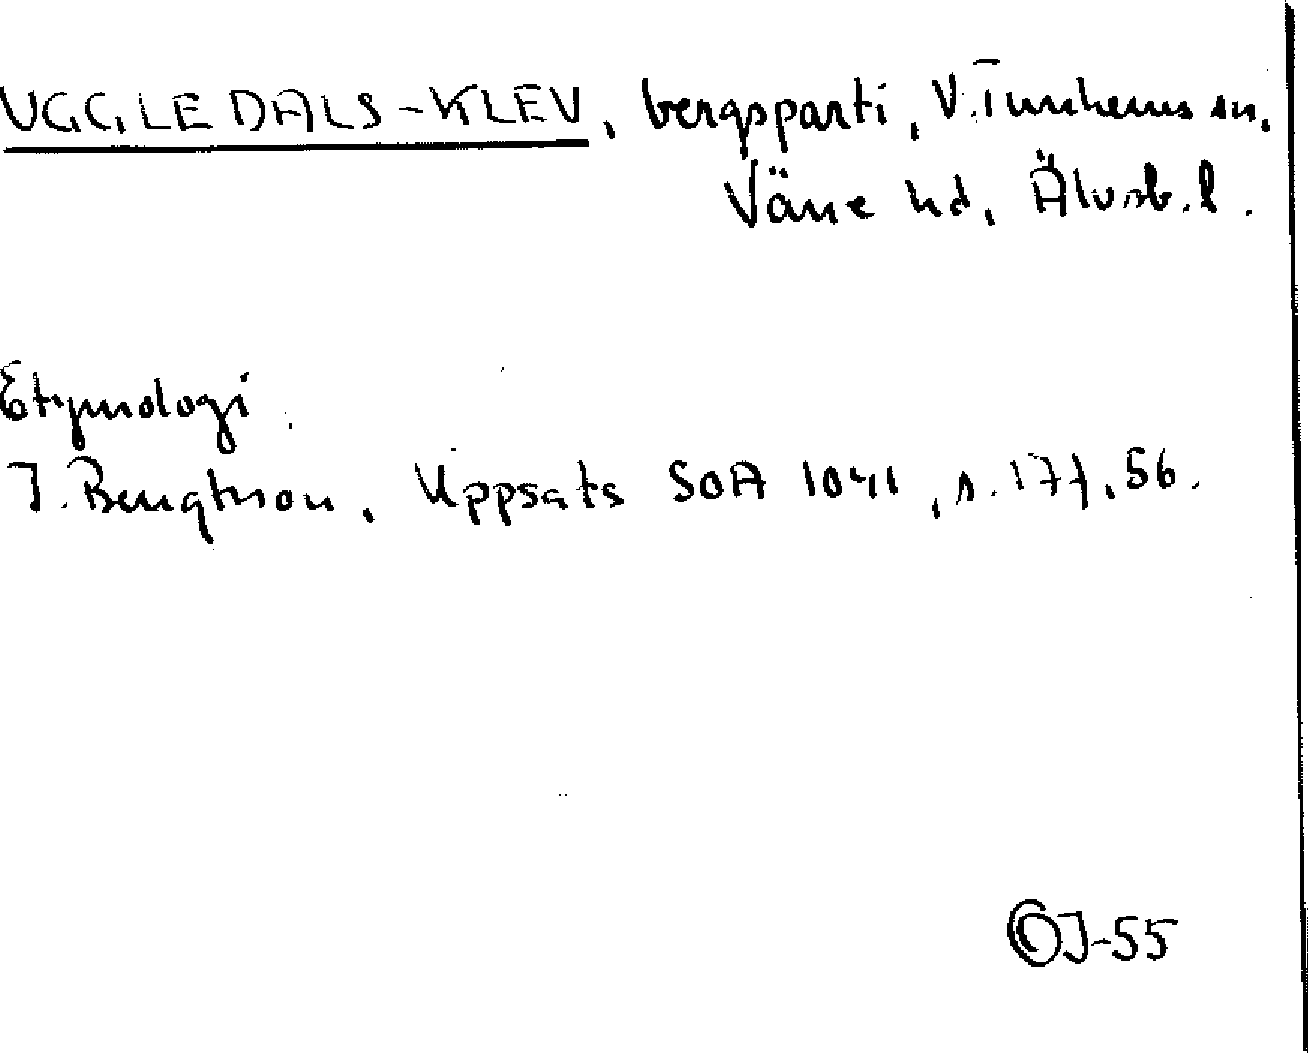 UGGLEDALS-KLEV, bergsparti, V. Tunhems sn.
Väne hd, Älvsb. l.
Etymologi
J. Bengtsson, Uppsats SOA 1041, s. 17f, 56.
CJ-55